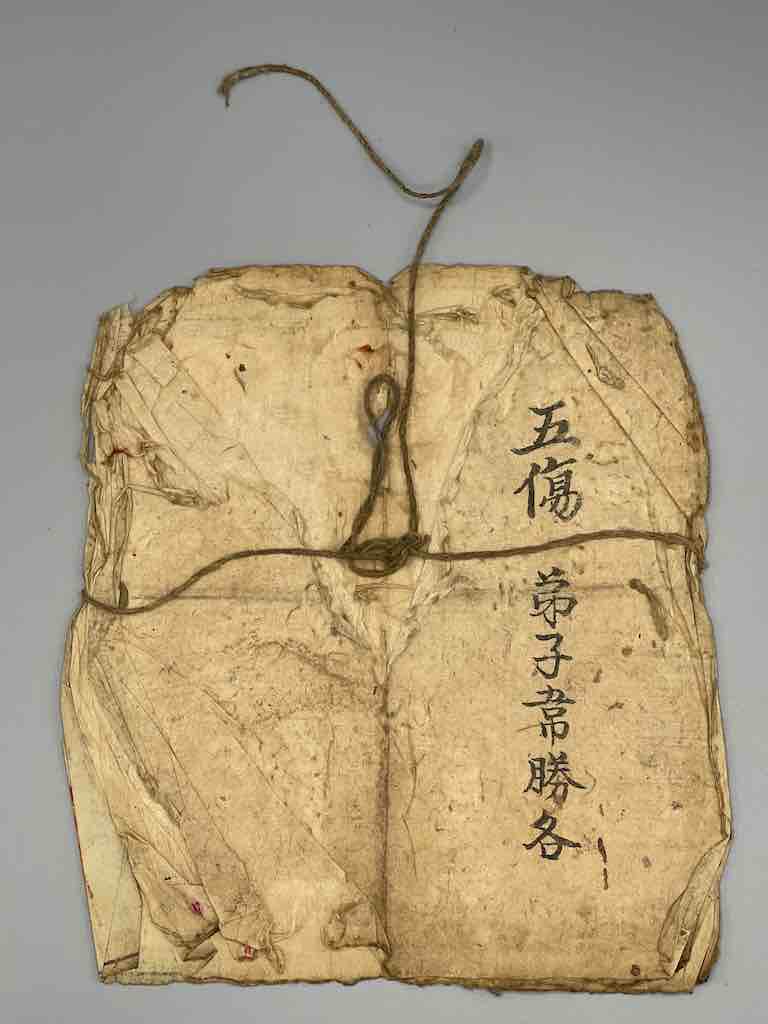 五傷 弟子韋勝各